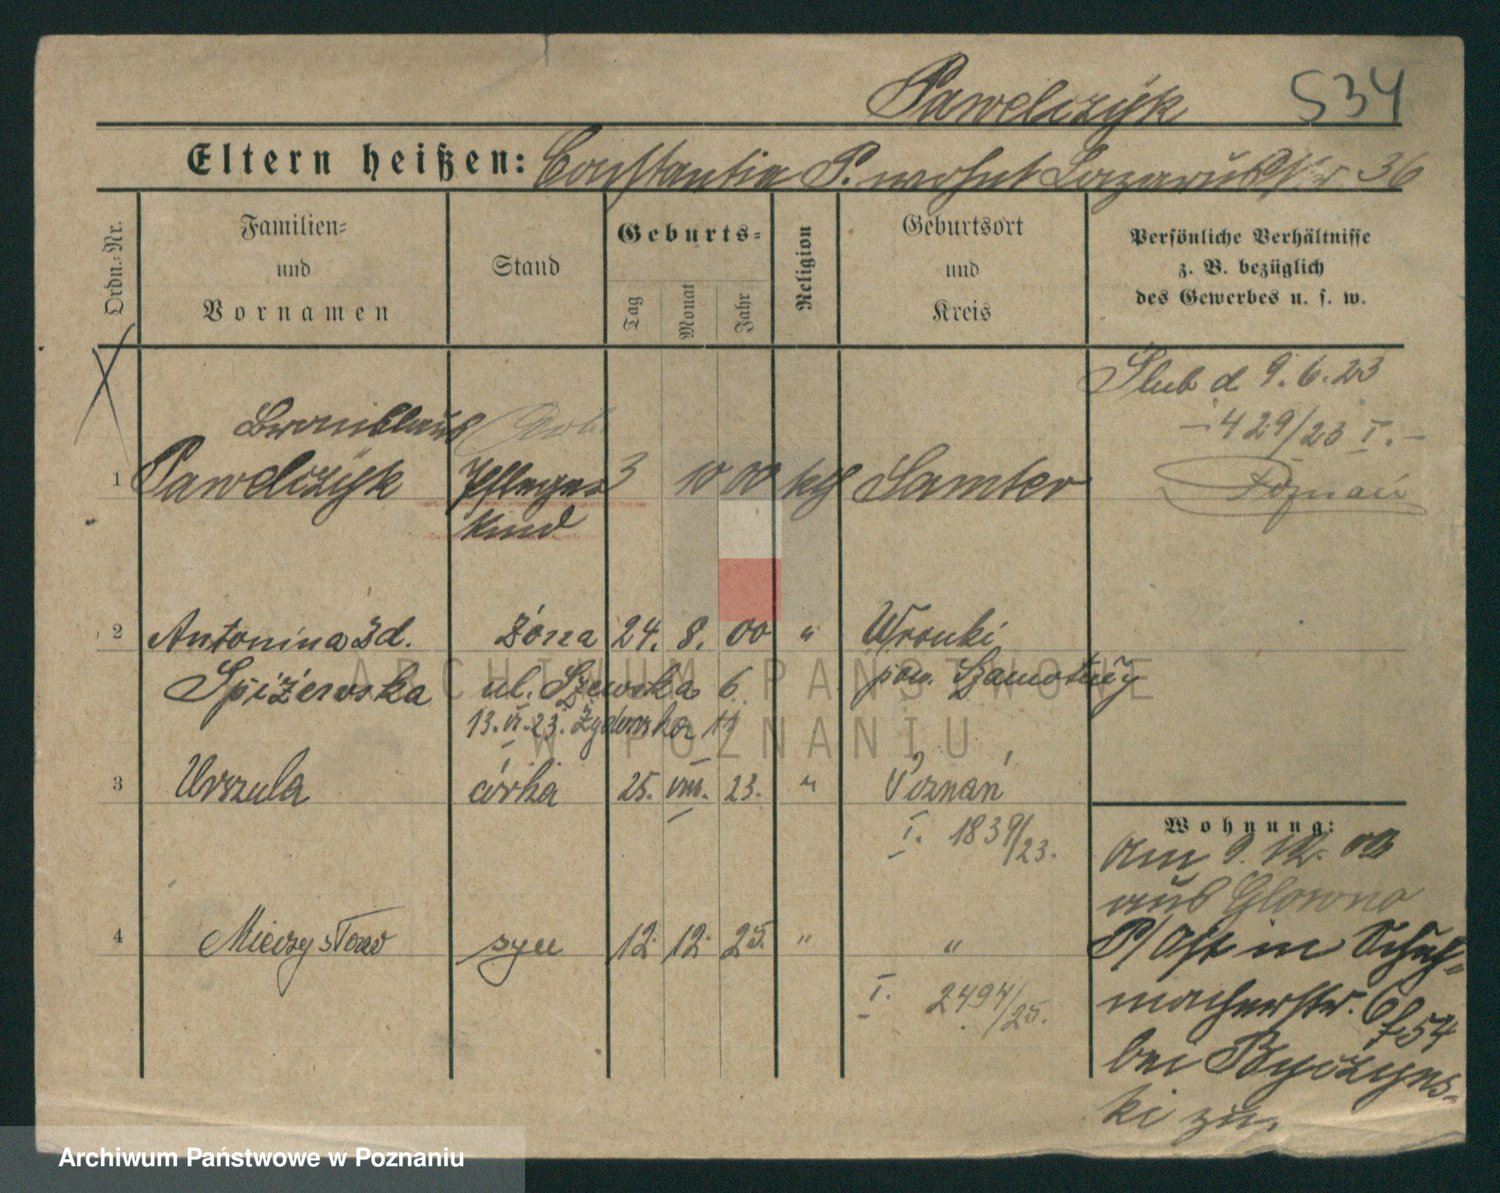 Pawelczyk 534
Eltern heißen: Constantia P. wohnt Lazarusstr 36
Ordn.-Nr.
Familien-
und
Vornamen
Stand
Geburts-
Tag
Monat
Jahr
Religion
Geburtsort
und
Kreis
Persönliche Verhältnisse
z. B. bezüglich
des Gewerbes u. s. w.
Ślub d 9.6.23
- 429/23 I. -
Poznań
Bronislaus
1 Pawelczyk Pflege= 3 10 00 kth Samter
kind
2 Antonina zd. żona 24. 8. 00 " Wronki
Spiżewska ul. Szewska 6 pow. Szamotuły
13.VI.23. Żydowska 11
3 Urszula córka 25. VIII. 23. " Poznań
I. 1839/23.
4 Mieczysław syn 12. 12. 25. " "
I. 2494/25.
Wohnung:
am 9. 12.
aus Glowno
P/Ost in Schuh=
macherstr. 6
f 54
bei Byczyns=
ki zu.
ARCHIWUM PAŃSTWOWE
W POZNANIU
Archiwum Państwowe w Poznaniu